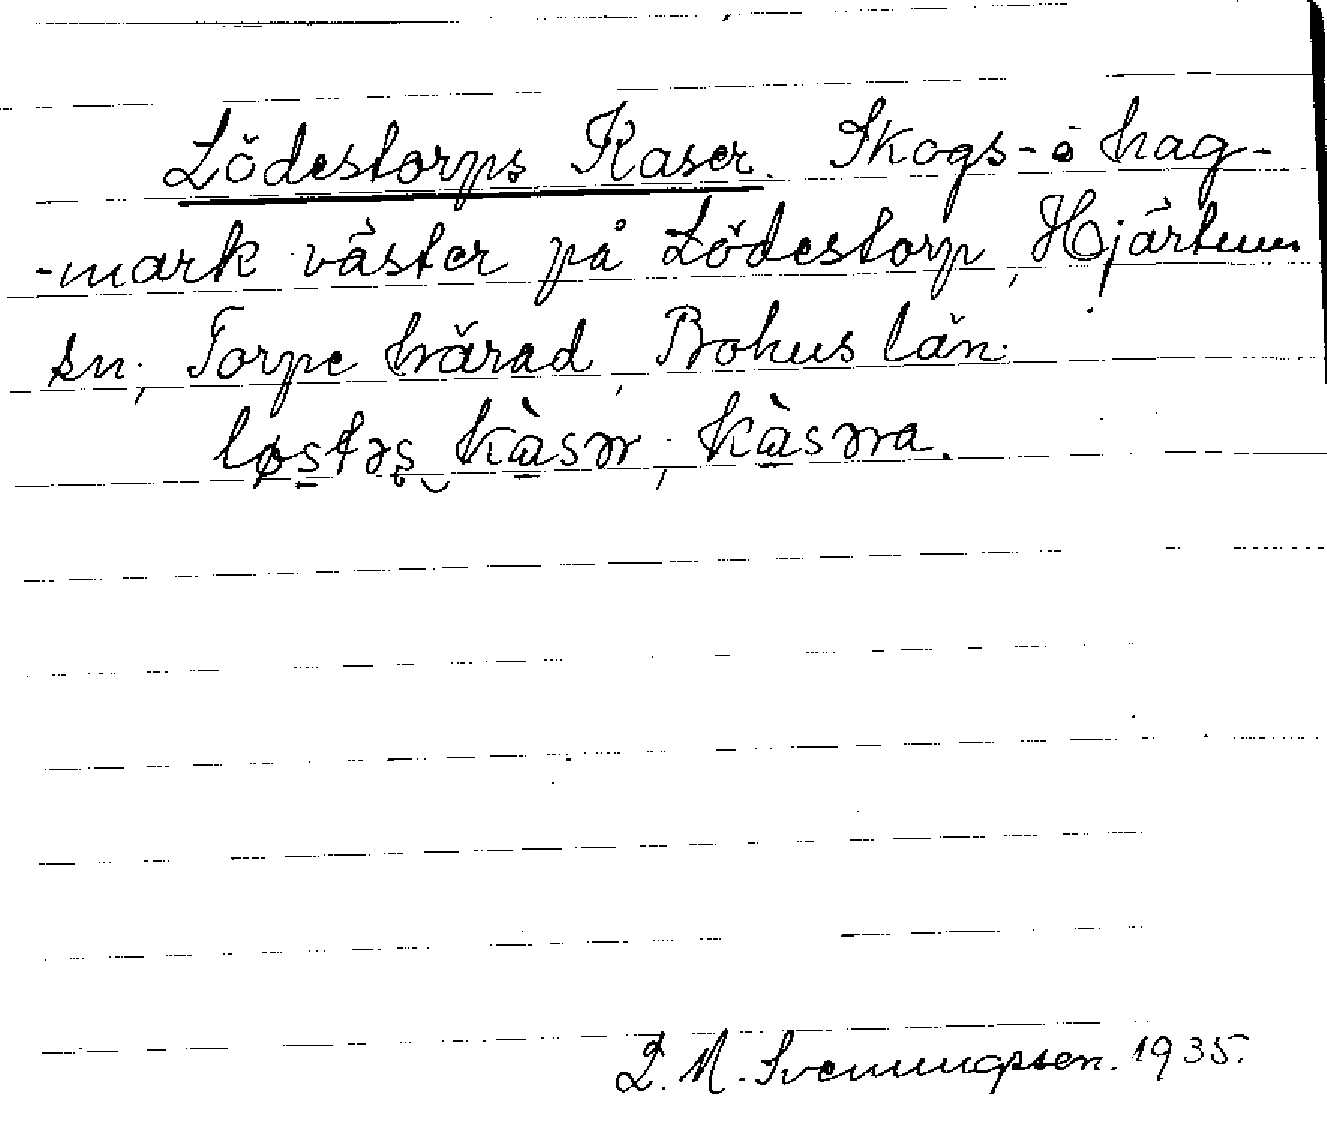 Lödestorps Kaser. Skogs- o hag-
-mark väster på Lödestorp, Hjärtum
sn; Torpe härad, Bohus län.
løstəs kàsər, kàsəra.
L. M. Svenungsson. 1935.